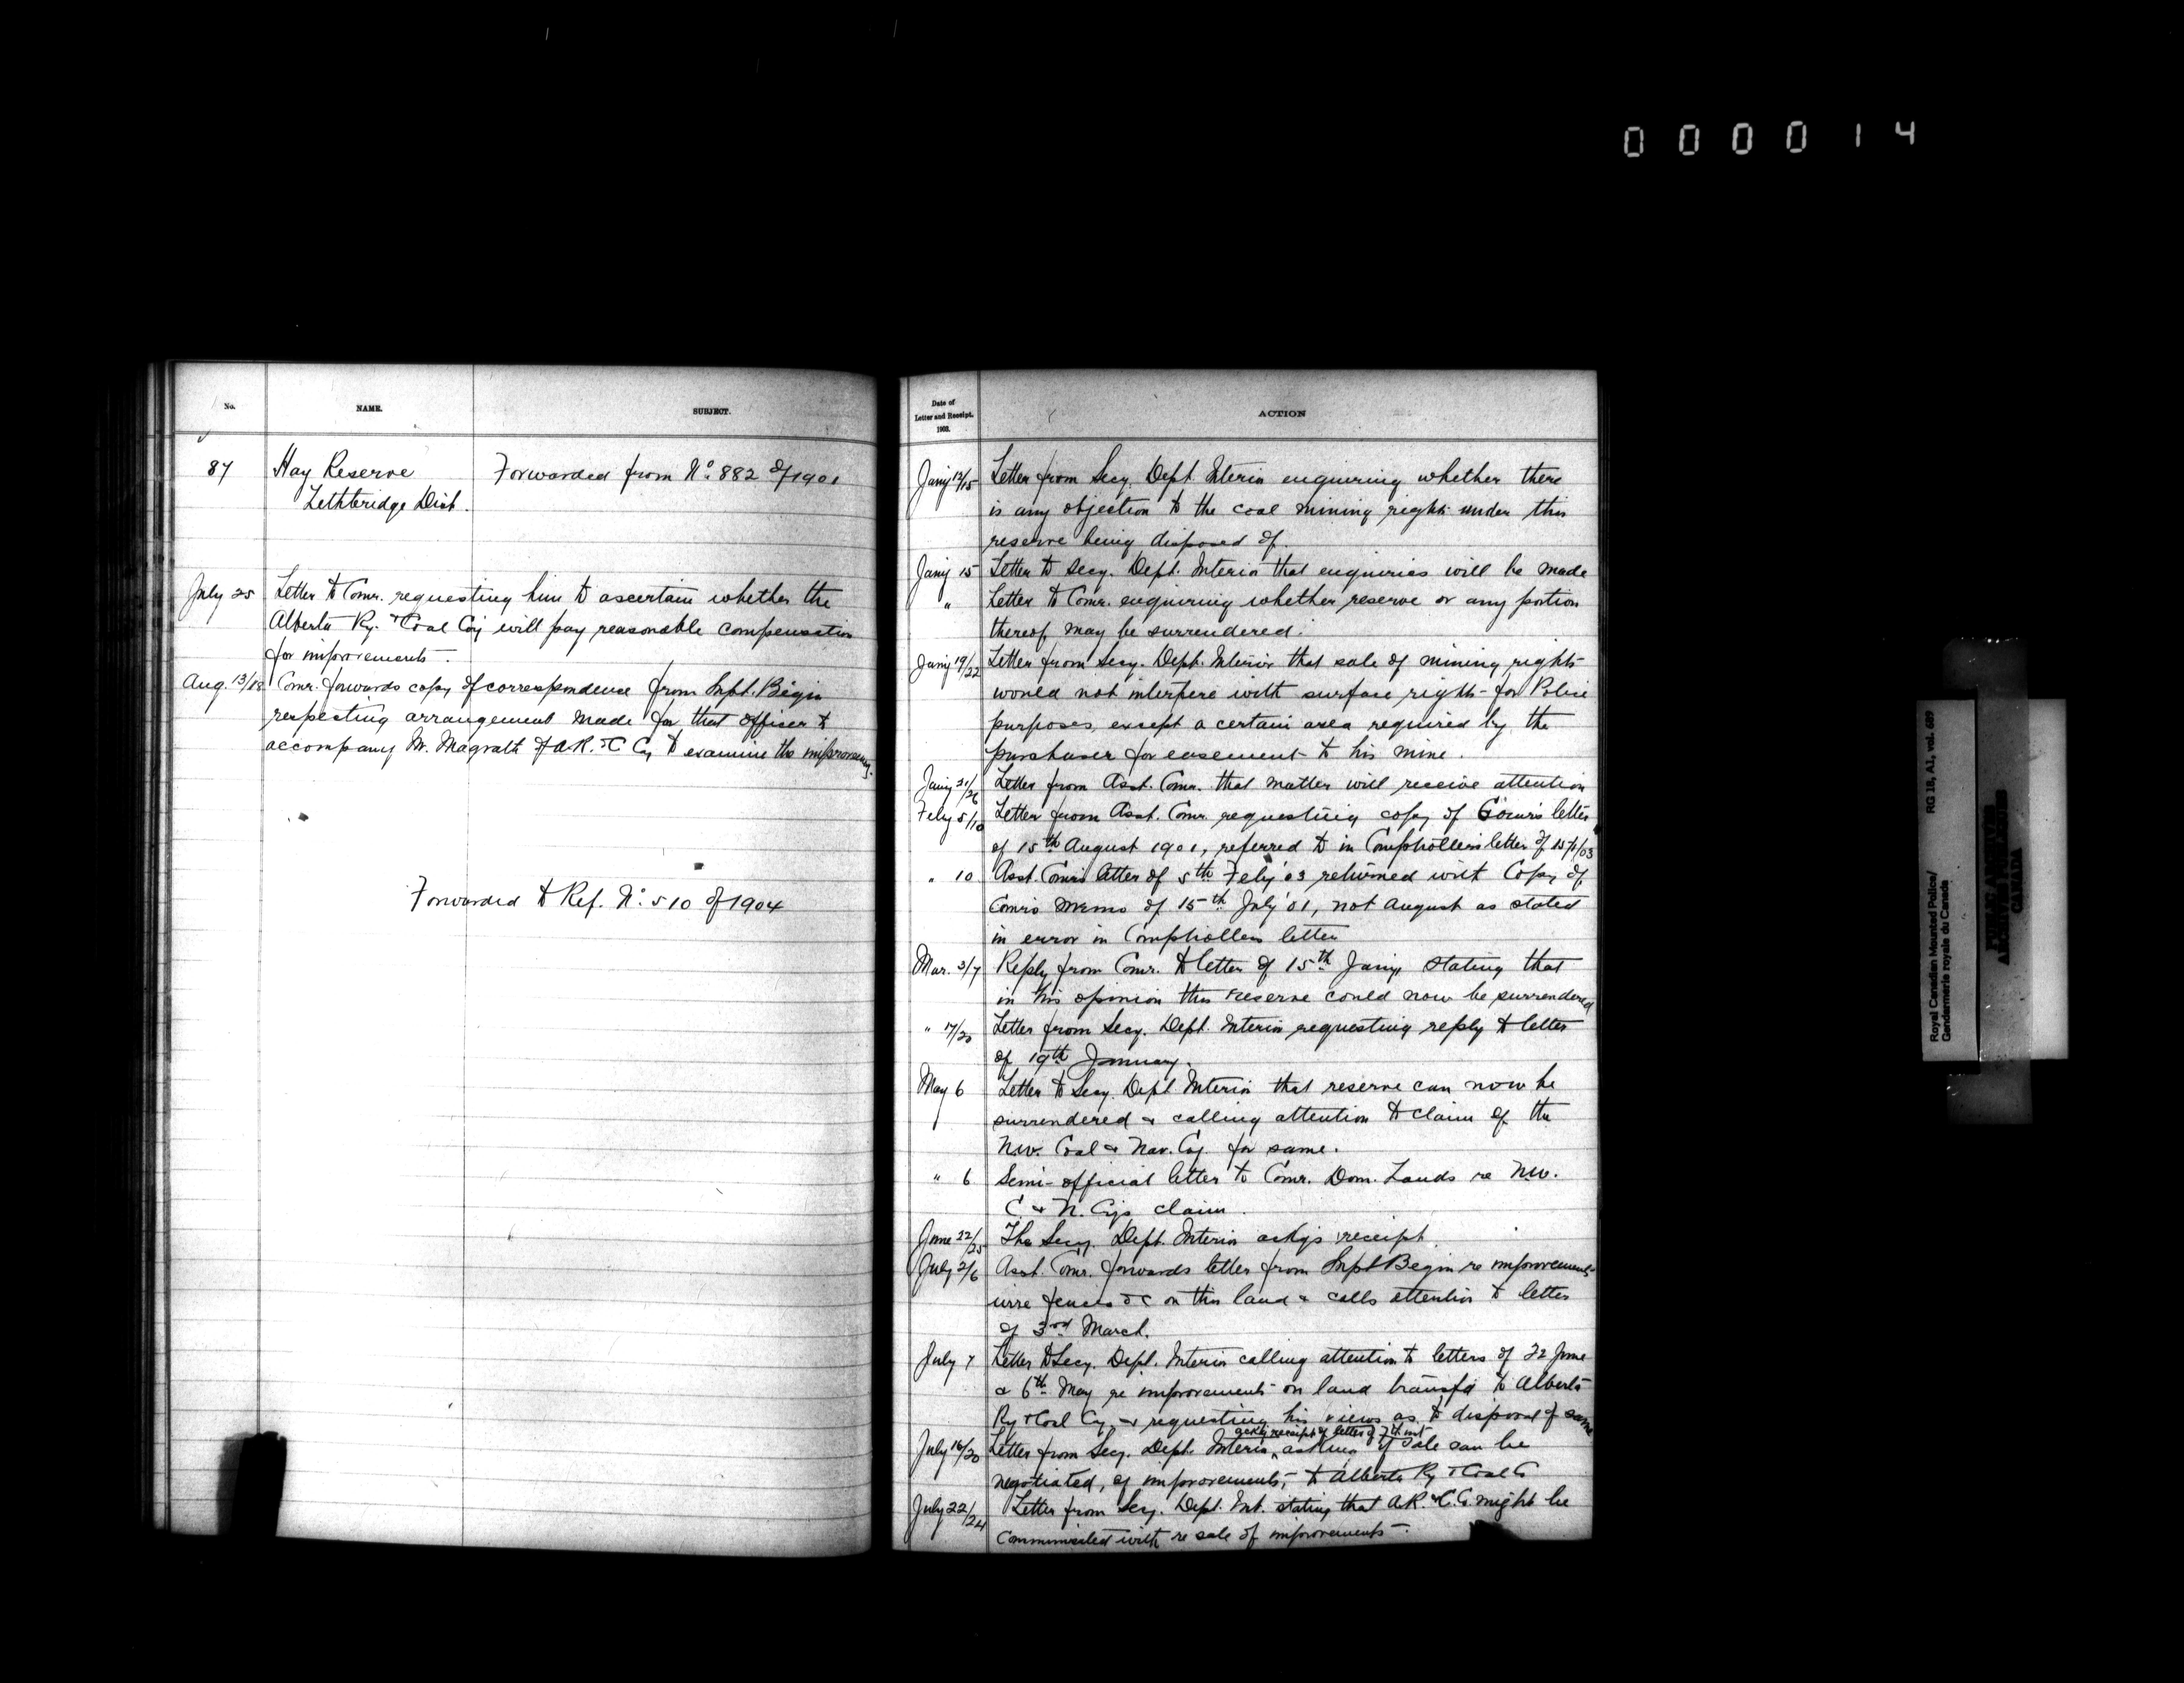 000014
No.
NAME.
SUBJECT.
87
Hay Reserve
Lethbridge Dist.
Forwarded from No. 882 of 1901
July 25 Letter to Comr. requesting him to ascertain whether the
Alberta Ry. & Coal Coy will pay reasonable compensation
for improvements.
Aug. 13/18 Comr. forwards copy of correspondence from Supt. Begin
respecting arrangement made for that officer to
accompany Mr. Magrath of A.R. & C Coy to examine the improvemts.
Forwarded to Ref. No. 510 of 1904
Date of
Letter and Receipt.
1903.
ACTION
Jany 12/15 Letter from Secy. Dept. Interior enquiring whether there
is any objection to the coal mining rights under this
reserve being disposed of.
Jany 15 Letter to Secy. Dept. Interior that enquiries will be made
" Letter to Comr. enquiring whether reserve or any portion
thereof may be surrendered.
Jany 19/22 Letter from Secy. Dept. Interior that sale of mining rights
would not interfere with surface rights for Police
purposes, except a certain area required by the
purchaser for easement to his mine.
Jany 21/26 Letter from Asst. Comr. that matter will receive attention
Feby 5/10 Letter from Asst. Comr. requesting copy of Comr's letter
of 15th August 1901, referred to in Comptroller's letter of 15/1/03
" 10 Asst. Comr's letter of 5th Feby '03 returned with Copy of
Comr's memo of 15th July '01, not August as stated
in error in Comptrollers letter
Mar. 3/7 Reply from Comr. to letter of 15th Jany, stating that
in his opinion this reserve could now be surrendered
" 17/20 Letter from Secy. Dept. Interior requesting reply to letter
of 19th January.
May 6 Letter to Secy. Dept Interior that reserve can now be
surrendered & calling attention to claim of the
N.W. Coal & Nav. Coy. for same.
" 6 Semi-official letter to Comr. Dom. Lands re N.W.
C. & N. Coys claim.
June 22/25 The Secy. Dept. Interior ackgs receipt.
July 2/6 Asst. Comr. forwards letter from Supt Begin re improvements
wire fences &c on this land & calls attention to letter
of 3rd March.
July 7 Letter to Secy. Dept. Interior calling attention to letters of 22 June
& 6th May re improvements on land transfd to Alberta
Ry & Coal Coy, & requesting his views as to disposal of same
ackg receipt of letter of 7th inst
July 16/20 Letter from Secy. Dept. Interior, asking if sale can be
negotiated, of improvements, to Alberta Ry & Coal Co
July 22/24 Letter from Secy. Dept. Int. stating that A.R. & C. Co. might be
Communicated with re sale of improvements.
Royal Canadian Mounted Police/
Gendarmerie royale du Canada
RG 18, A1, vol. 689
PUBLIC ARCHIVES
ARCHIVES PUBLIQUES
CANADA